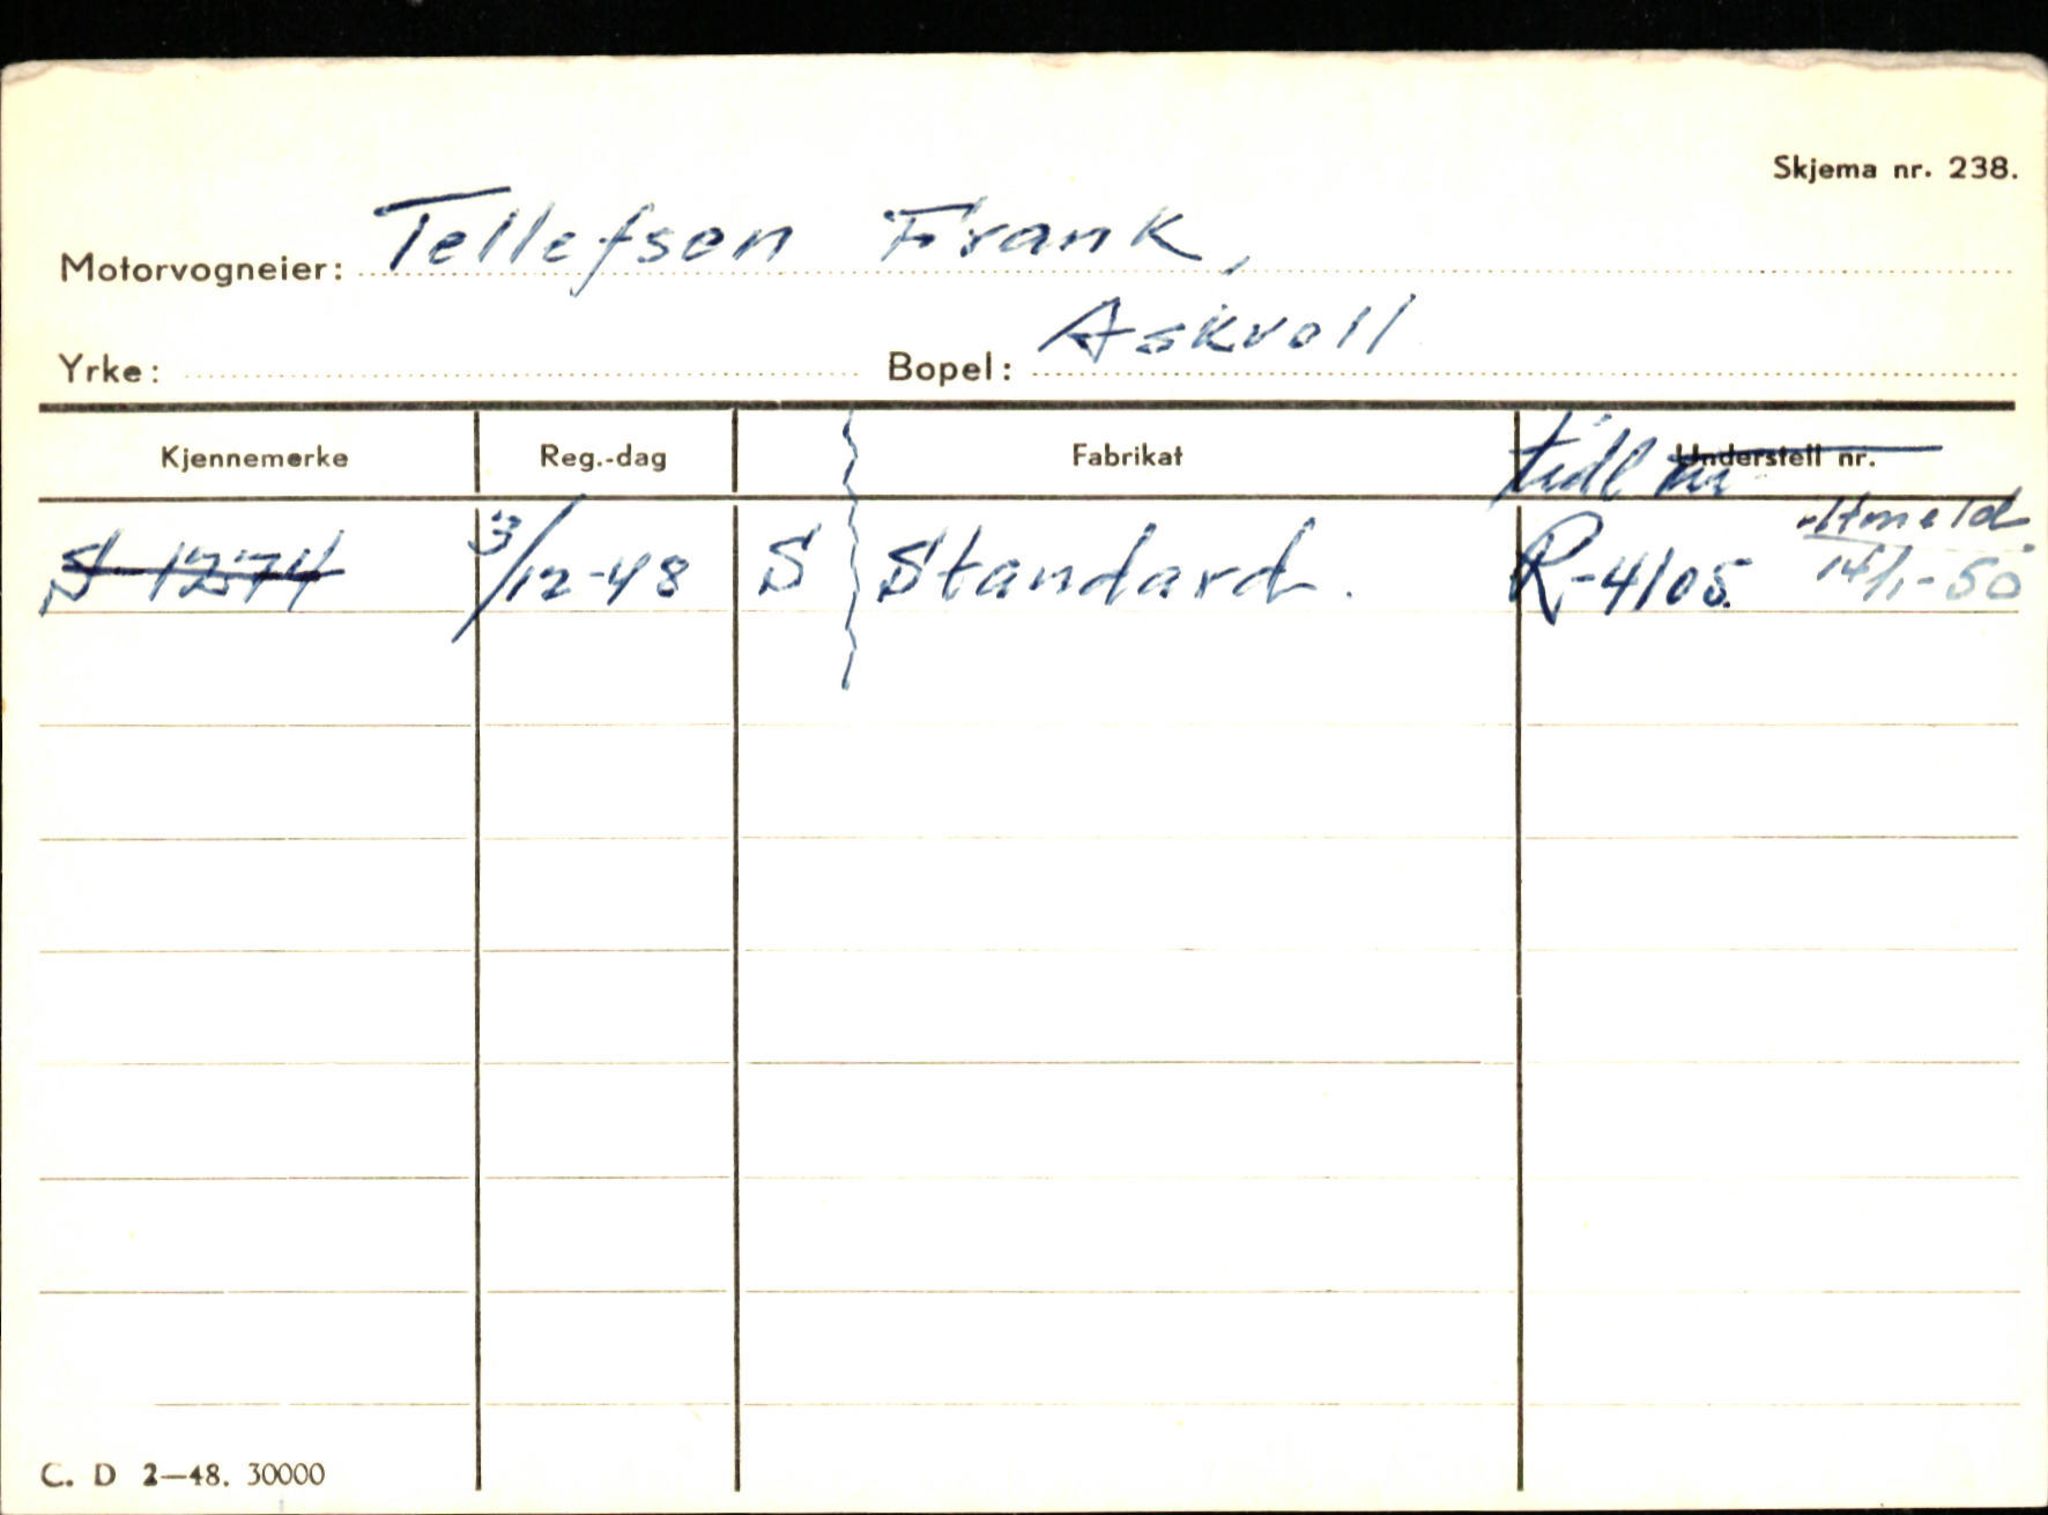 Skjema nr. 238.
Motorvogneier: Tellefsen Frank,
Yrke: Bopel: Askvoll
Kjennemerke Reg.-dag Fabrikat Understell nr. tidl nr
S-1274 3/12-48 S Standard. R-4105. utmeld 14/1-50
C. D 2—48. 30000